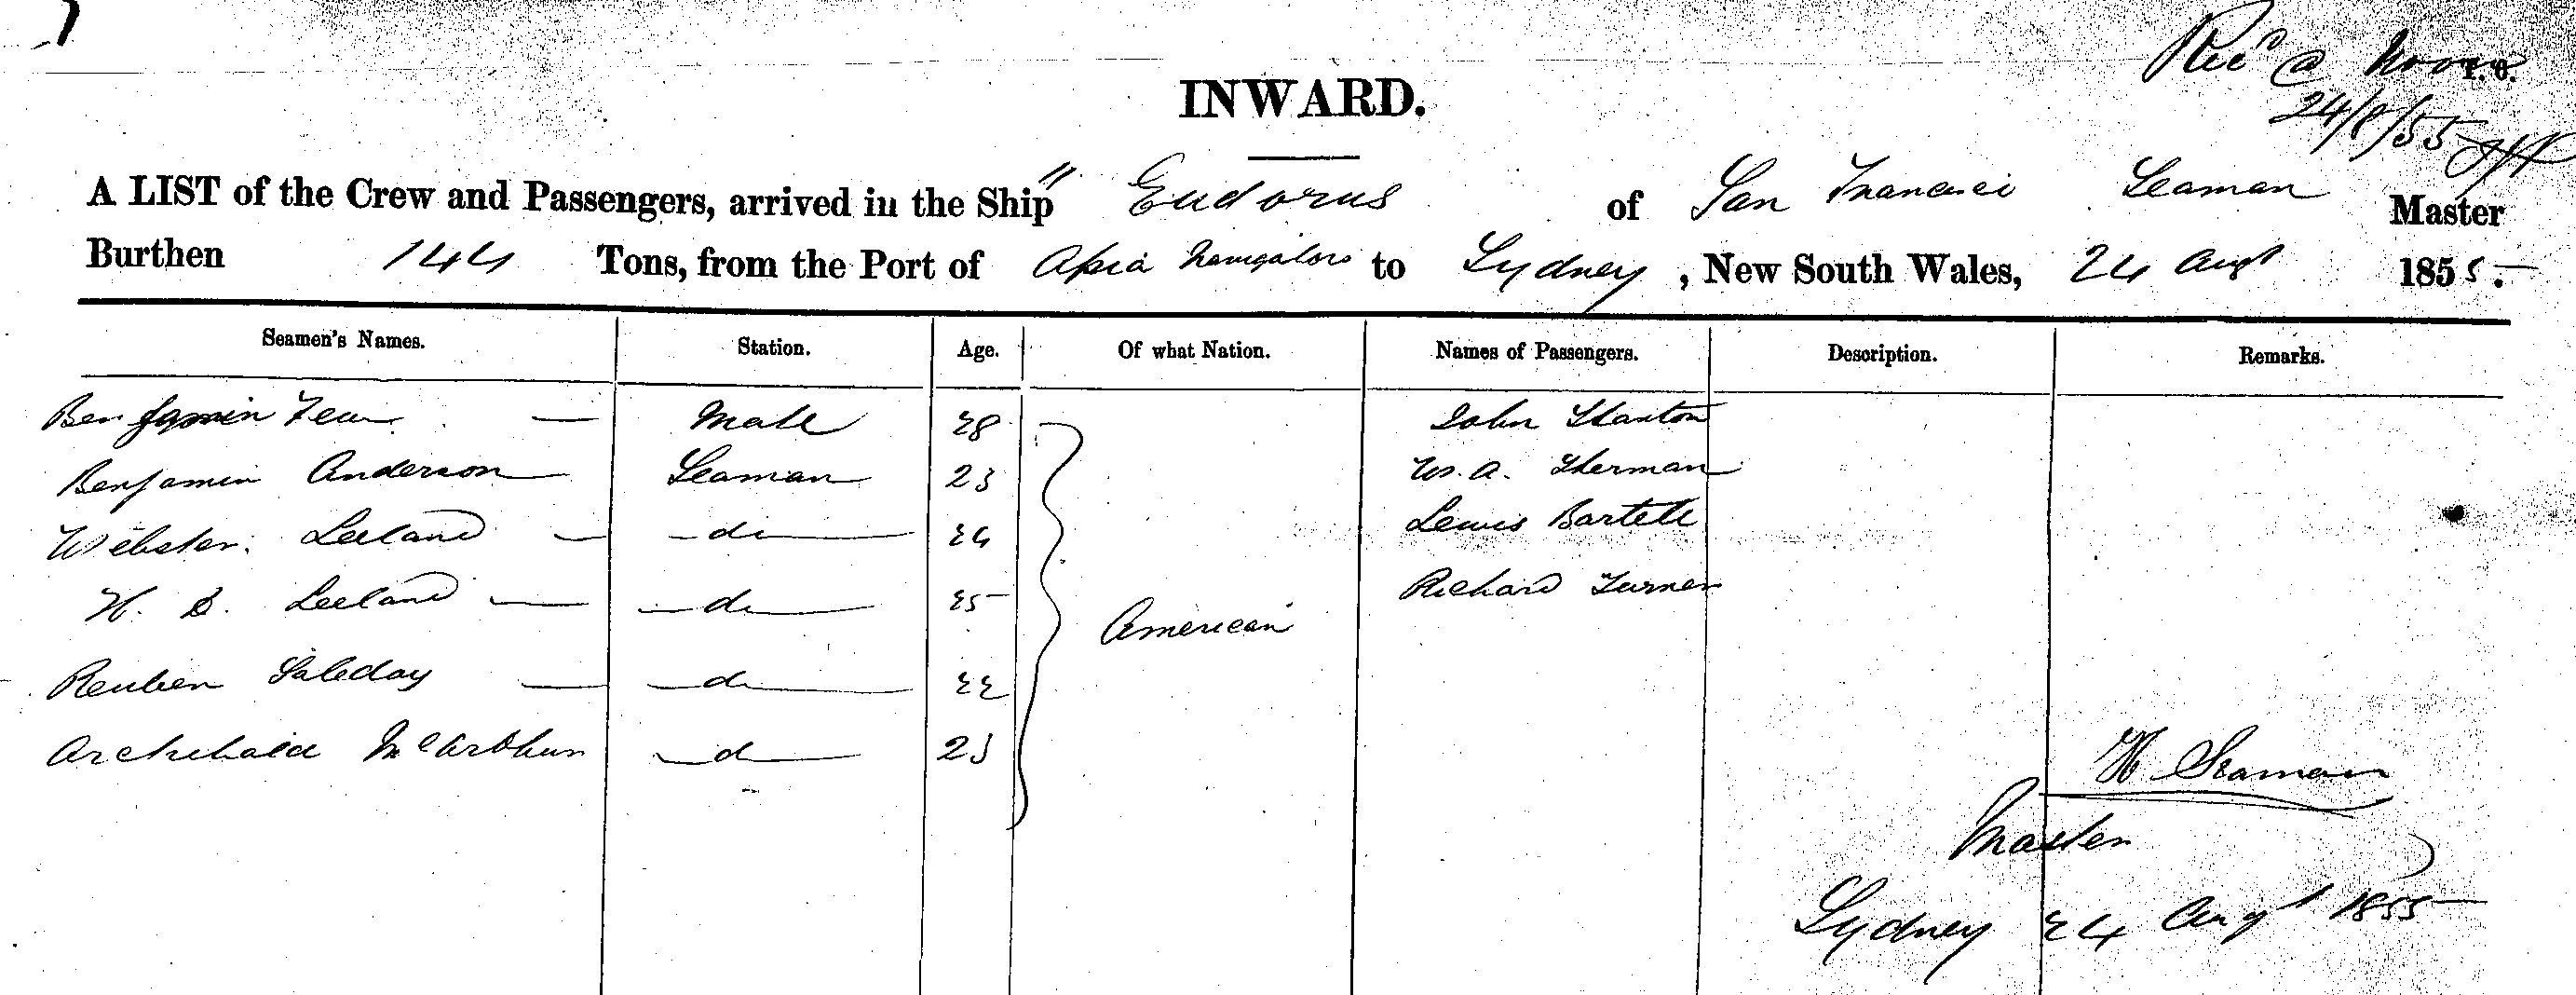 Recd @ Noon P. O.
24/8/55
INWARD.
A LIST of the Crew and Passengers, arrived in the Ship " Eudorus of San Francisci Seaman Master
Burthen 144 Tons, from the Port of Apia Navigators to Sydney, New South Wales, 24 Augt 1855.
Seamen's Names. Station. Age. Of what Nation. Names of Passengers. Description. Remarks.
Benjamin Mate 28 John Stanton
Benjamin Anderson Seaman 23 W. A. Sherman
Webster Leeland do 24 Lewis Bartell
H. S. Leeland do 25 American Richard Turner
Reuben do 22
Archibald McArthur do 23
W Seaman
Master
Sydney 24 Augt 1855